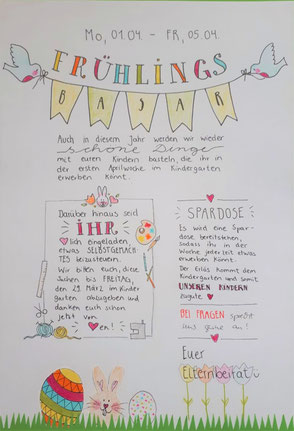 Mo, 01.04. - FR, 05.04.
FRÜHLINGS
BASAR
Auch in diesem Jahr werden wir wieder
schöne Dinge
mit euren Kindern basteln, die ihr in
der ersten Aprilwoche im Kindergarten
erwerben könnt.
Darüber hinaus seid
IHR
lich eingeladen,
etwas SELBSTGEMACH
TES beizusteuern.
Wir bitten euch, diese
Sachen bis FREITAG,
den 29. MÄRZ im Kinder
garten abzugeben und
danken euch schon
jetzt von
en!
SPARDOSE
Es wird eine Spar-
dose bereitstehen,
sodass ihr in der
Woche jederzeit etwas
erwerben könnt.
Der Erlös kommt dem
Kindergarten und somit
UNSEREN KINDERN
zugute
BEI FRAGEN sprecht
uns gerne an!
Euer
Elternbeirat